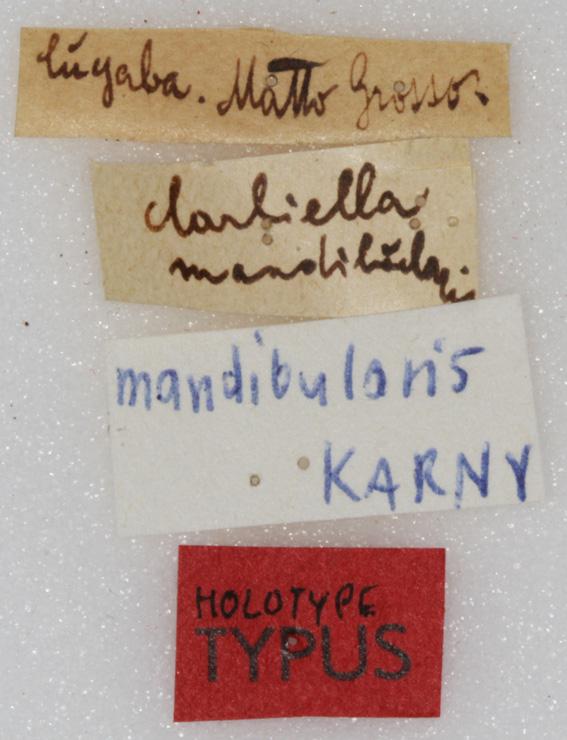 Cúyaba. Matto Grosso.
Clarkiella
mandibularis
mandibularis
KARNY
HOLOTYPE
TYPUS